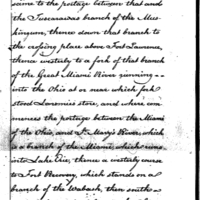 same to the portage between that and
the Tuscarawas branch of the Mus-
kingum, thence down that branch to
the crossing place above Fort Lawrence,
thence westerly to a fork of that branch
of the Great Miami River running
into the Ohio at or near which fork
stood Loromies store, and where com-
mences the portage between the Miami
of the Ohio, and St. Mary's River, which
is a branch of the Miami, which runs
into Lake Erie; thence a westerly course
to Fort Recovery, which stands on a
branch of the Wabash, then south-